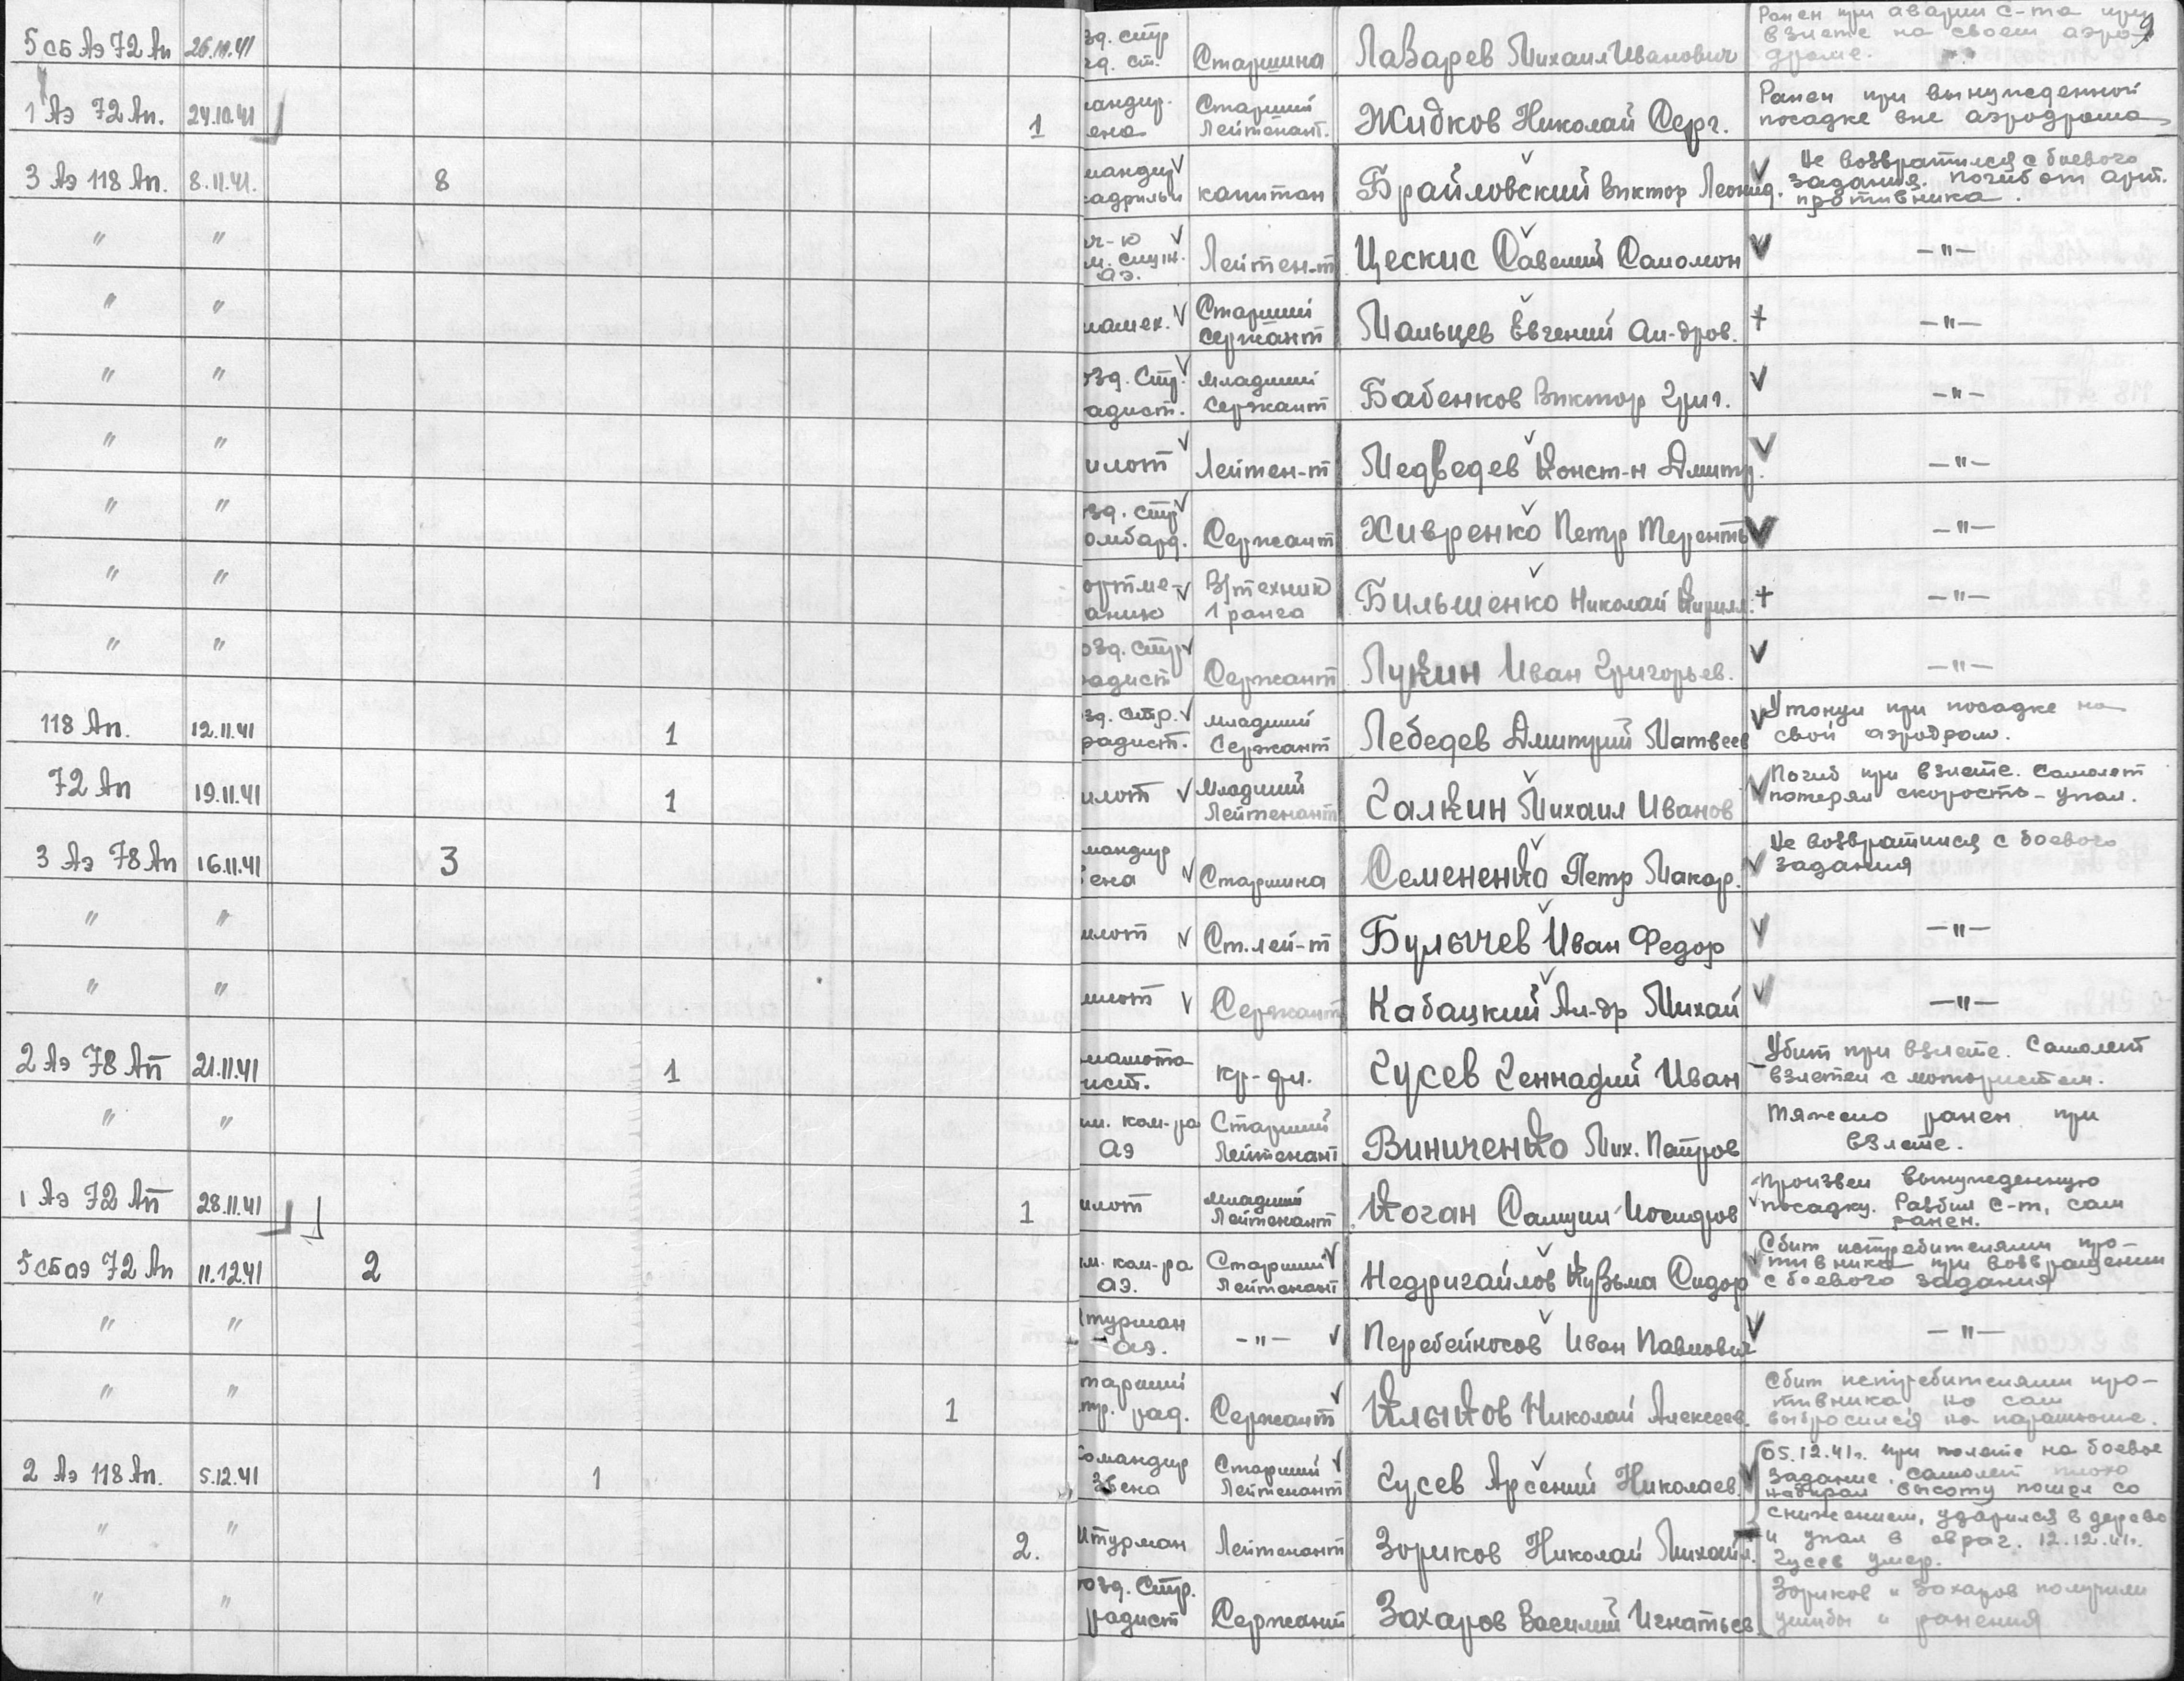 9
5 сб Аэ 72 Ап 26.10.41 зд. стр Старшина Лазарев Михаил Иванович Ранен при аварии с-та при
взлете на своем аэро-
дроме.
1 Аэ 72 Ап. 24.10.41 1 мандир. Старший Жидков Николай Серг. Ранен при вынужденной
ена Лейтенант. посадке вне аэродрома
3 Аэ 118 Ап. 8.11.41. 8 мандир капитан Брайловский Виктор Леонид. Не возвратился с боевого
адрильи задания. Погиб от арт.
противника.
" " м. служ. Лейтен-т Цескис Савелий Соломон —"—
аэ.
" " Старший Мальцев Евгений Ал-дров. —"—
Сержант
" " озд. Стр. Младший Бабенков Виктор Григ. —"—
адист. Сержант
" " илот Лейтен-т Медведев Конст-н Дмитр. —"—
" " озд. стр Сержант Живренко Петр Терентьев —"—
омбард.
" " ортме- В/техник Бильшенко Николай Кирилл. —"—
аник 1 ранга
" " озд. стр Сержант Лукин Иван Григорьев. —"—
радист
118 Ап. 12.11.41 1 зд. стр. Младший Лебедев Дмитрий Матвеев Утонул при посадке на
радист. Сержант свой аэродром.
72 Ап 19.11.41 1 илот Младший Галкин Михаил Иванов Погиб при взлете. Самолет
Лейтенант потерял скорость – упал.
3 Аэ 78 Ап 16.11.41 3 мандир Старшина Семененко Петр Макар. Не возвратился с боевого
ена задания
" " илот Ст. лей-т Булычев Иван Федор —"—
" " илот Сержант Кабацкий Ал-др Михай —"—
2 Аэ 78 Ап 21.11.41 1 кр-фл. Гусев Геннадий Иван Убит при взлете. Самолет
взлетел с мотористом.
" " м. ком-ра Старший Виниченко Мих. Петров Тяжело ранен при
Аэ Лейтенант взлете.
1 Аэ 72 Ап 28.11.41 1 илот Младший Коган Самуил Иосифов Произвел вынужденную
Лейтенант посадку. Разбил с-т, сам
ранен.
5 сб аэ 72 Ап 11.12.41 2 м. ком-ра Старший Недригайлов Кузьма Сидор Сбит истребителями про-
аэ. Лейтенант тивника при возвращении
с боевого задания
" " турман —"— Перебейносов Иван Павлович —"—
аэ.
" " 1 тарший Сержант Клыков Николай Алексеев. Сбит истребителями про-
стр. рад. тивника, но сам
выбросился на парашюте.
2 Аэ 118 Ап. 5.12.41 1 омандир Старший Гусев Арсений Николаев. 05.12.41г. при полете на боевое
Звена Лейтенант задание, самолет плохо
набирал высоту пошел со
" " 2. Штурман Лейтенант Зориков Николай Михайл. снижением, ударился в дерево
и упал в овраг. 12.12.41г.
Гусев умер.
" " озд. Стр. Сержант Захаров Василий Игнатьев Зориков и Захаров получили
радист ушибы и ранения